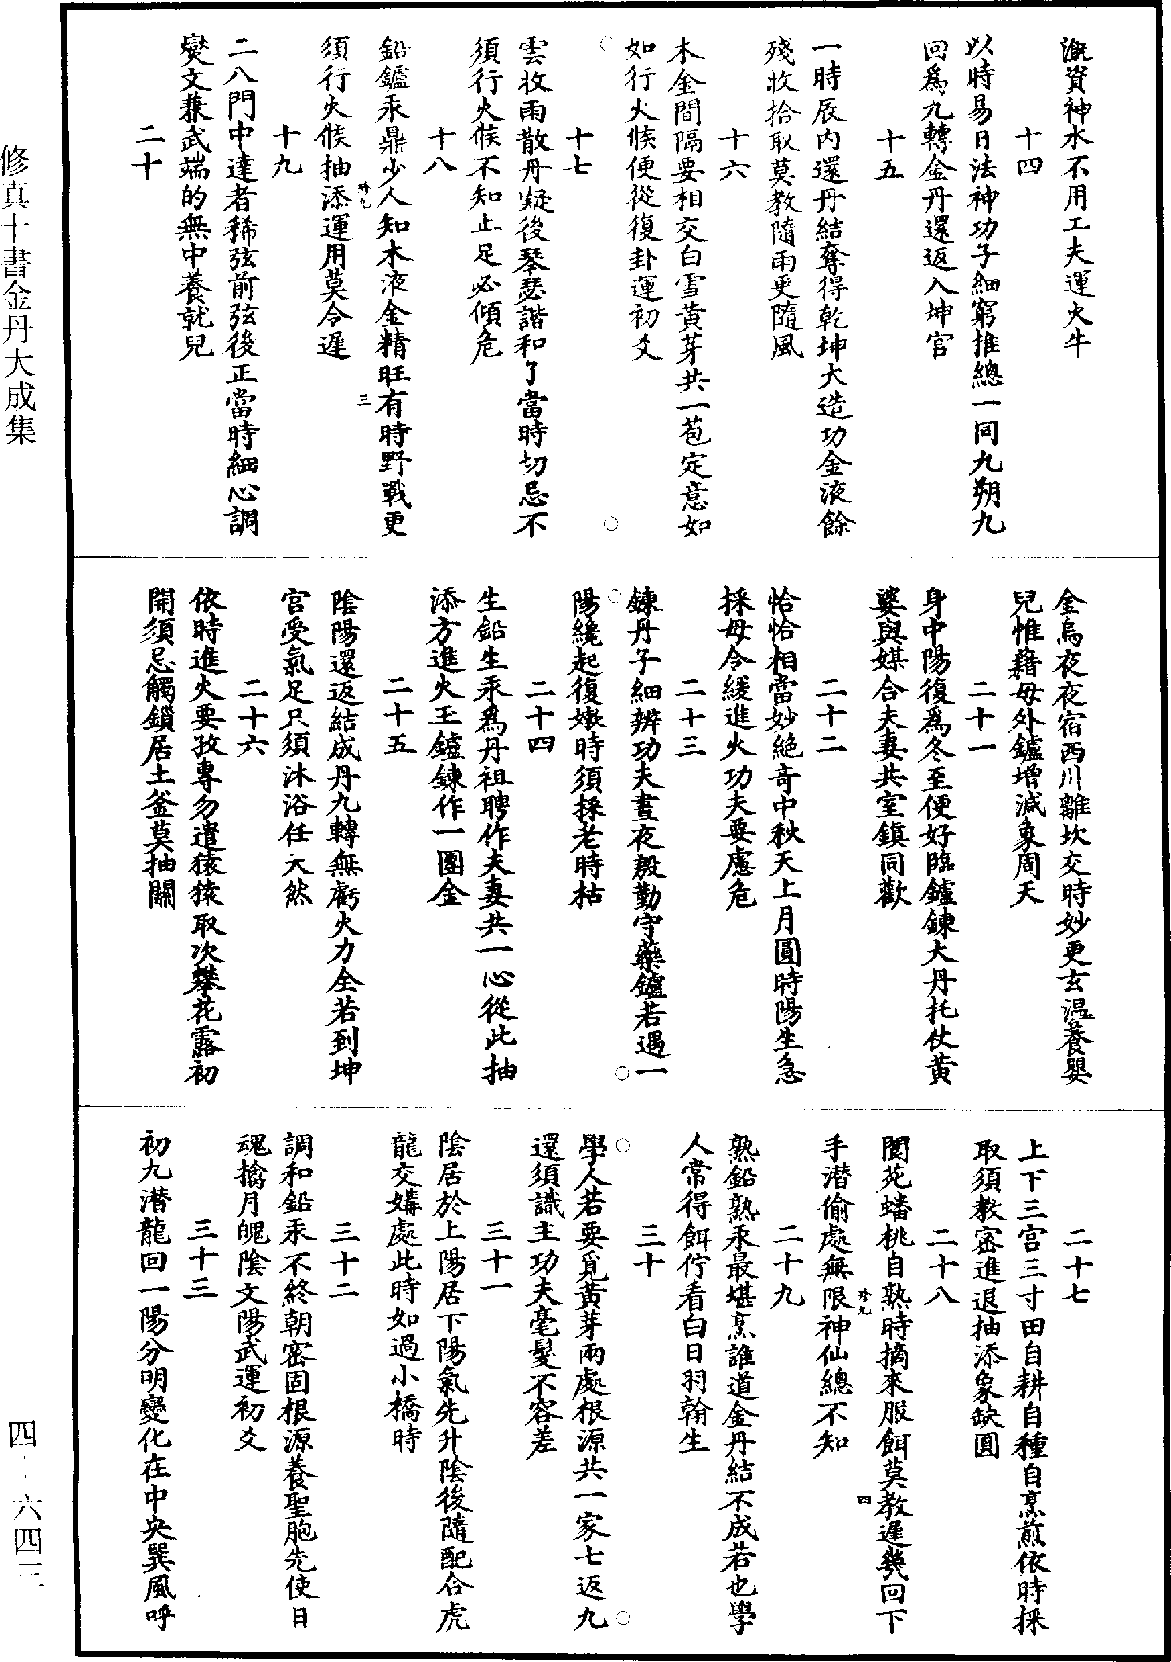 溉資神水不用工夫運火牛
十四
以時易日法神功子細窮推總一同九朔九
回爲九轉金丹還返入坤宫
十五
一時辰内還丹結奪得乾坤大造功金液餘
殘收拾取莫教隨雨更隨風
十六
木金間隔要相交白雪黄芽共一苞定意如
如行火候便從復卦運初爻
十七
雲收雨散丹凝後琴瑟諧和了當時切忌不
須行火候不知止足必傾危
十八
鉛鑪汞鼎少人知木液金精旺有時野戰更
須行火候抽添運用莫令遲
珍九
三
十九
二八門中達者稀弦前弦後正當時細心調
燮文兼武端的無中養就兒
二十
金烏夜夜宿西川離坎交時妙更玄温養嬰
兒惟藉母外鑪增減象周天
二十一
身中陽復爲冬至便好臨鑪鍊大丹托仗黄
婆與媒合夫妻共室鎮同歡
二十二
恰恰相當妙絶奇中秋天上月圓時陽生急
採毋令緩進火功夫要慮危
二十三
鍊丹子細辨功夫晝夜殷勤守藥鑪若遇一
陽纔起復嫩時須採老時枯
二十四
生鉛生汞爲丹祖聘作夫妻共一心從此抽
添方進火玉鑪鍊作一團金
二十五
陰陽還返結成丹九轉無虧火力全若到坤
宫受氣足只須沐浴任天然
二十六
依時進火要孜專勿遣猿猿取次攀花露初
開須忌觸鎖居土釜莫抽關
二十七
上下三宫三寸田自耕自種自烹煎依時採
取須教密進退抽添象缺圓
二十八
閬苑蟠桃自熟時摘來服餌莫教遲幾回下
手潜偷處無限神仙總不知
珍九
四
二十九
熟鉛熟汞最堪烹誰道金丹結不成若也學
人常得餌佇看白日羽翰生
三十
學人若要覓黄芽兩處根源共一家七返九
還須識主功夫毫髮不容差
三十一
陰居於上陽居下陽氣先升陰後隨配合虎
龍交媾處此時如過小橋時
三十二
調和鉛汞不終朝密固根源養聖胞先使日
魂擒月魄陰文陽武運初爻
三十三
初九潜龍回一陽分明變化在中央巽風呼
修真十書金丹大成集
四·六四三